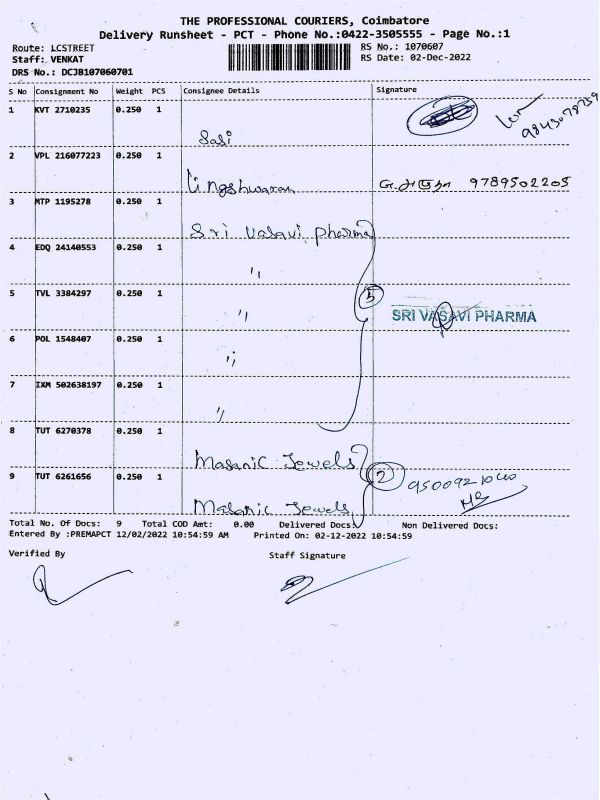 THE PROFESSIONAL COURIERS, Coimbatore
Delivery Runsheet - PCT - Phone No.:0422-3505555 - Page No.:1
Route: LCSTREET RS No.: 1070607
Staff: VENKAT RS Date: 02-Dec-2022
DRS No.: DCJB107060701
S No Consignment No Weight PCS Consignee Details Signature
1 KVT 2710235 0.250 1
Sasi
2 VPL 216077223 0.250 1
Lingeshwaran 9789502205
3 MTP 1195278 0.250 1
Sri Vasavi Pharma
4 EDQ 24140553 0.250 1
"
5 TVL 3384297 0.250 1 5
" SRI VASAVI PHARMA
6 POL 1548407 0.250 1
"
7 IXM 502638197 0.250 1
"
8 TUT 6270378 0.250 1
Masanic Jewels
9 TUT 6261656 0.250 1 2
Jewels
Total No. Of Docs: 9 Total COD Amt: 0.00 Delivered Docs: Non Delivered Docs:
Entered By :PREMAPCT 12/02/2022 10:54:59 AM Printed On: 02-12-2022 10:54:59
Verified By Staff Signature